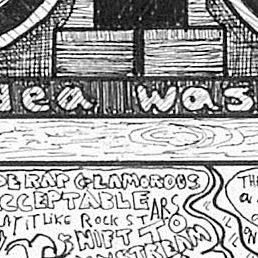 dea was
DE RAP GLAMOROUS
ACCEPTABLE
AT IT LIKE ROCK STARS
SHIFT TO
TH
a